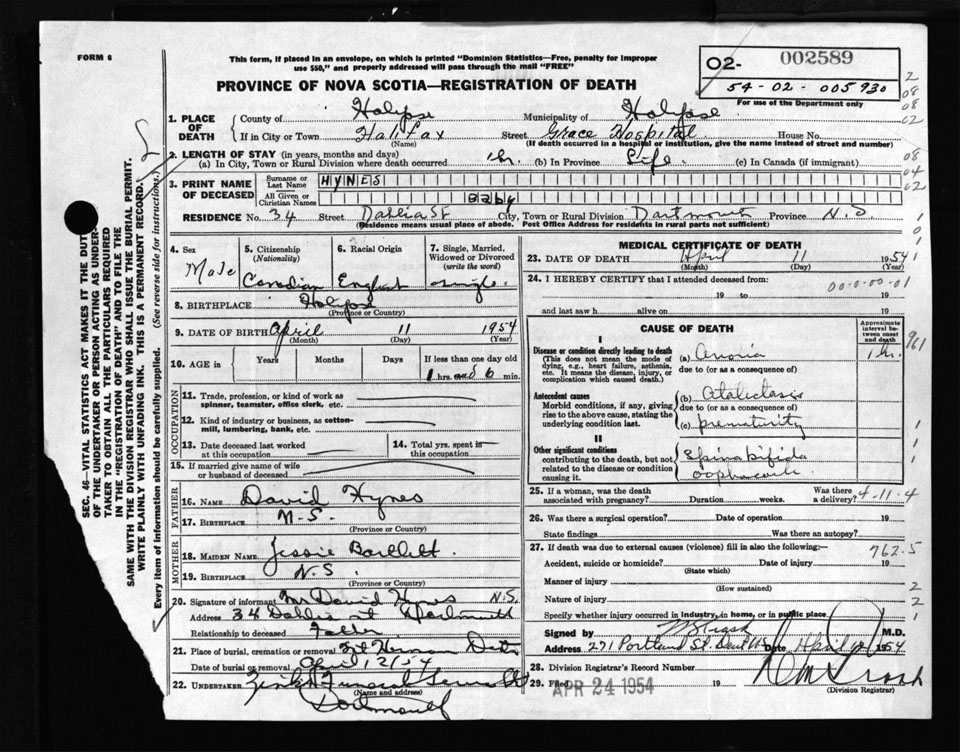 FORM 6
This form, if placed in an envelope, on which is printed "Dominion Statistics—Free, penalty for improper
use $50," and properly addressed will pass through the mail "FREE"
PROVINCE OF NOVA SCOTIA—REGISTRATION OF DEATH
002589
O2-
54-02-005930
For use of the Department only
1. PLACE OF DEATH
County of Halifax Municipality of Halifax
If in City or Town Halifax Street Grace Hospital House No.
(Name) (If death occurred in a hospital or institution, give the name instead of street and number)
2. LENGTH OF STAY (in years, months and days)
(a) In City, Town or Rural Division where death occurred 1 hr. (b) In Province Life. (c) In Canada (if immigrant)
3. PRINT NAME OF DECEASED
Surname or Last Name HYNES
All Given or Christian Names Baby
RESIDENCE No. 34 Street Dahlia St City, Town or Rural Division Dartmouth Province N.S.
(Residence means usual place of abode. Post Office Address for residents in rural parts not sufficient)
2
08
08
02
08
04
02
1
0
1
SEC. 46—VITAL STATISTICS ACT MAKES IT THE DUTY
OF THE UNDERTAKER OR PERSON ACTING AS UNDER-
TAKER TO OBTAIN ALL THE PARTICULARS REQUIRED
IN THE "REGISTRATION OF DEATH" AND TO FILE THE
SAME WITH THE DIVISION REGISTRAR WHO SHALL ISSUE THE BURIAL PERMIT.
WRITE PLAINLY WITH UNFADING INK. THIS IS A PERMANENT RECORD.
Every item of information should be carefully supplied. (See reverse side for instructions.)
4. Sex Male
5. Citizenship (Nationality) Canadian
6. Racial Origin English
7. Single, Married, Widowed or Divorced (write the word) single.
8. BIRTHPLACE Halifax
(Province or Country)
9. DATE OF BIRTH April 11 1954
(Month) (Day) (Year)
10. AGE in Years Months Days If less than one day old
1 hrs. and 6 min.
OCCUPATION
11. Trade, profession, or kind of work as
spinner, teamster, office clerk, etc.
12. Kind of industry or business, as cotton-
mill, lumbering, bank, etc.
13. Date deceased last worked
at this occupation
14. Total yrs. spent in
this occupation
15. If married give name of wife
or husband of deceased
FATHER
16. NAME David Hynes
17. BIRTHPLACE N.S.
(Province or Country)
MOTHER
18. MAIDEN NAME Jessie Bartlett.
19. BIRTHPLACE N.S.
(Province or Country)
20. Signature of informant Mr David Hynes N.S.
Address 34 Dahlia st Dartmouth
Relationship to deceased Father
21. Place of burial, cremation or removal Mt Herman Dart
Date of burial or removal April 12/54
22. UNDERTAKER Zinks Funeral
(Name and address)
Dartmouth
MEDICAL CERTIFICATE OF DEATH
23. DATE OF DEATH April 11 1954
(Month) (Day) (Year)
24. I HEREBY CERTIFY that I attended deceased from:
00-0-00-01
19 to 19
and last saw h alive on 19
CAUSE OF DEATH
Approximate interval between onset and death
I
Disease or condition directly leading to death (a) Anoxia 1 hr.
(This does not mean the mode of
dying, e.g., heart failure, asthenia,
etc. It means the disease, injury, or
complication which caused death.)
due to (or as a consequence of)
961
Antecedent causes (b) Atalectasis
Morbid conditions, if any, giving
rise to the above cause, stating the
underlying condition last.
due to (or as a consequence of)
(c) prematurity
II
Other significant conditions
contributing to the death, but not
related to the disease or condition
causing it.
Spina Bifida
25. If a woman, was the death
associated with pregnancy? Duration weeks. Was there a delivery? 4-11-4
26. Was there a surgical operation? Date of operation 19
State findings Was there an autopsy?
27. If death was due to external causes (violence) fill in also the following:— 762.5
Accident, suicide or homicide? Date of injury 19
(State which)
Manner of injury
(How sustained)
Nature of injury
Specify whether injury occurred in industry, in home, or in public place
Signed by M.D.
Address 271 Portland St. Date April 19 54
28. Division Registrar's Record Number
29. Filed APR 24 1954 19
(Division Registrar)